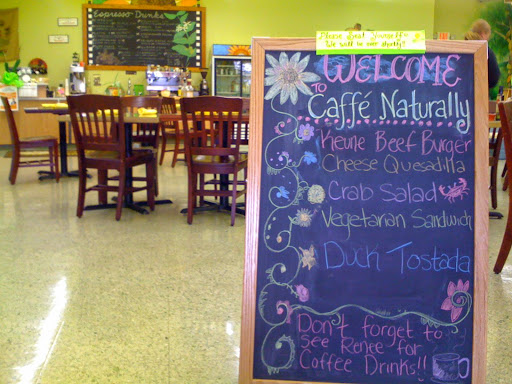 Espresso Drinks
Please Seat Yourself!!
We will be over shortly!
WELCOME
TO
Caffé Naturally
Keune Beef Burger
Cheese Quesadilla
Crab Salad
Vegetarian Sandwich
Duck Tostada
Don't forget to
see Renee for
Coffee Drinks!!